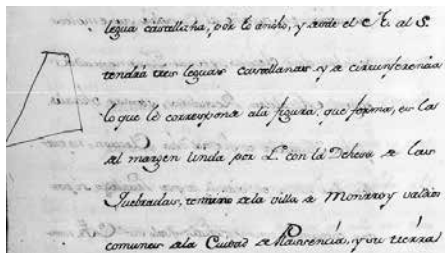 legua castellana, por lo ancho, y desde el N. al S.
tendrá tres leguas castellanas y de circunferencia
lo que le corresponde ala figura, que forma, es la
del margen linda por L. con la Dehesa de las
Quebradas, termino de la villa de Monrroy valdios
comunes dela Ciudad de Plasencia, y su tierra